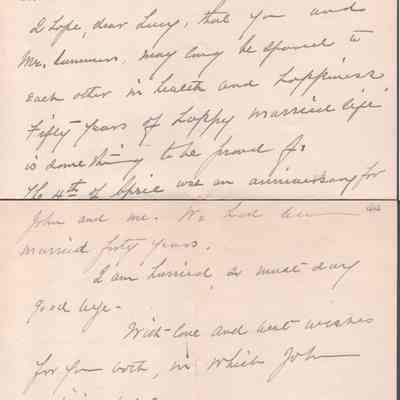 I hope, dear Lucy, that you and
Mr. may long be spared to
each other in health and happiness
Fifty years of happy married life
is something to be proud of.
The 4th of April was an anniversary for
John and me. We had been
married forty years.
I am hurried, so must say
good bye -
With love and best wishes
for you both, in which John